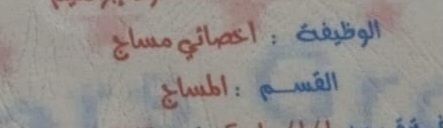 الوظيفة : اخصائي مساج
القسم : المساج